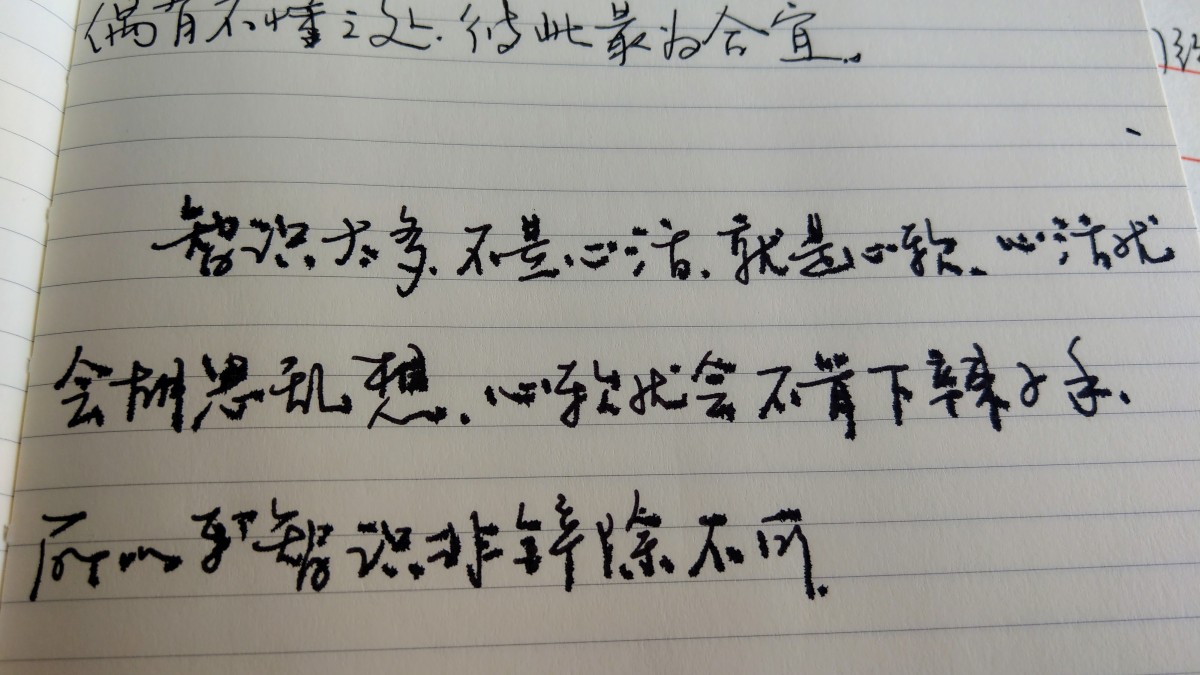 偶有不懂之处.彼此最为合宜.
智识太多.不是心活.就是心软.心活就
会胡思乱想.心软就会不肯下辣手.
所以智识非铲除不可.